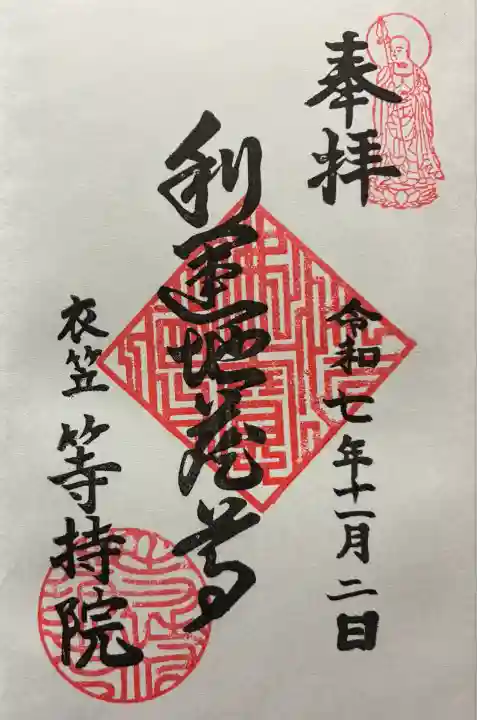 奉拝
令和七年十一月二日
利運地蔵尊
衣笠 等持院